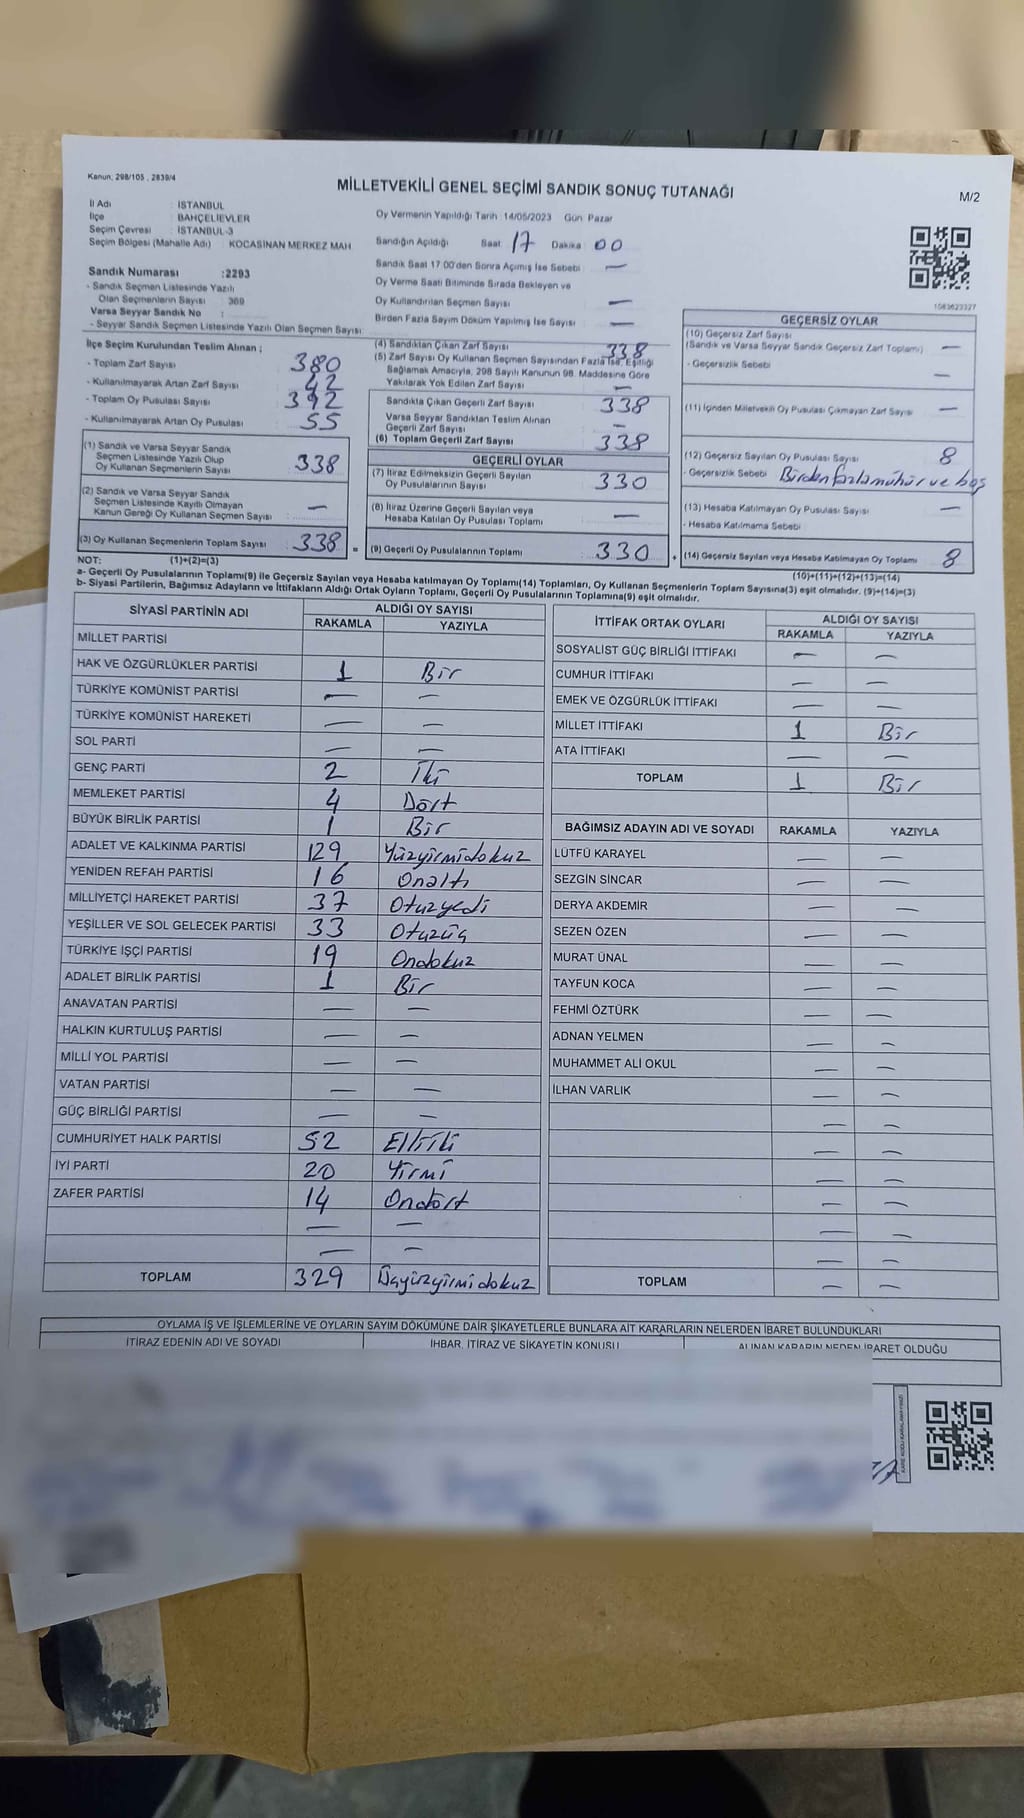 Kanun: 298/105 , 2839/4
MİLLETVEKİLİ GENEL SEÇİMİ SANDIK SONUÇ TUTANAĞI
M/2
İl Adı : İSTANBUL
İlçe : BAHÇELİEVLER
Seçim Çevresi : İSTANBUL-3
Seçim Bölgesi (Mahalle Adı) KOCASİNAN MERKEZ MAH
Sandık Numarası :2293
- Sandık Seçmen Listesinde Yazılı
Olan Seçmenlerin Sayısı : 369
Varsa Seyyar Sandık No :
- Seyyar Sandık Seçmen Listesinde Yazılı Olan Seçmen Sayısı :
Oy Vermenin Yapıldığı Tarih :14/05/2023 Gün: Pazar
Sandığın Açıldığı Saat: 17 Dakika: 00
Sandık Saat 17:00'den Sonra Açımış İse Sebebi : —
Oy Verme Saati Bitiminde Sırada Bekleyen ve
Oy Kullandırılan Seçmen Sayısı : —
Birden Fazla Sayım Döküm Yapılmış İse Sayısı : —
1083623327
İlçe Seçim Kurulundan Teslim Alınan ;
- Toplam Zarf Sayısı : 380
- Kullanılmayarak Artan Zarf Sayısı : 42
- Toplam Oy Pusulası Sayısı : 392
- Kullanılmayarak Artan Oy Pusulası : 55
(1) Sandık ve Varsa Seyyar Sandık
Seçmen Listesinde Yazılı Olup
Oy Kullanan Seçmenlerin Sayısı : 338
(2) Sandık ve Varsa Seyyar Sandık
Seçmen Listesinde Kayıtlı Olmayan
Kanun Gereği Oy Kullanan Seçmen Sayısı : —
(3) Oy Kullanan Seçmenlerin Toplam Sayısı : 338
(4) Sandıktan Çıkan Zarf Sayısı : 338
(5) Zarf Sayısı Oy Kullanan Seçmen Sayısından Fazla İse, Eşitliği
Sağlamak Amacıyla, 298 Sayılı Kanunun 98. Maddesine Göre
Yakılarak Yok Edilen Zarf Sayısı : —
Sandıkta Çıkan Geçerli Zarf Sayısı : 338
Varsa Seyyar Sandıktan Teslim Alınan
Geçerli Zarf Sayısı : —
(6) Toplam Geçerli Zarf Sayısı : 338
GEÇERLİ OYLAR
(7) İtiraz Edilmeksizin Geçerli Sayılan
Oy Pusulalarının Sayısı : 330
(8) İtiraz Üzerine Geçerli Sayılan veya
Hesaba Katılan Oy Pusulası Toplamı : —
= (9) Geçerli Oy Pusulalarının Toplamı : 330
GEÇERSİZ OYLAR
(10) Geçersiz Zarf Sayısı
(Sandık ve Varsa Seyyar Sandık Geçersiz Zarf Toplamı) : —
- Geçersizlik Sebebi : —
(11) İçinden Milletvekili Oy Pusulası Çıkmayan Zarf Sayısı : —
(12) Geçersiz Sayılan Oy Pusulası Sayısı : 8
- Geçersizlik Sebebi : Birden fazla mühür ve boş
(13) Hesaba Katılmayan Oy Pusulası Sayısı : —
- Hesaba Katılmama Sebebi :
+ (14) Geçersiz Sayılan veya Hesaba Katılmayan Oy Toplamı : 8
NOT: (1)+(2)=(3)
(10)+(11)+(12)+(13)=(14)
a- Geçerli Oy Pusulalarının Toplamı(9) ile Geçersiz Sayılan veya Hesaba katılmayan Oy Toplamı(14) Toplamları, Oy Kullanan Seçmenlerin Toplam Sayısına(3) eşit olmalıdır. (9)+(14)=(3)
b- Siyasi Partilerin, Bağımsız Adayların ve İttifakların Aldığı Ortak Oyların Toplamı, Geçerli Oy Pusulalarının Toplamına(9) eşit olmalıdır.
SİYASİ PARTİNİN ADI ALDIĞI OY SAYISI
RAKAMLA YAZIYLA
MİLLET PARTİSİ
HAK VE ÖZGÜRLÜKLER PARTİSİ 1 Bir
TÜRKİYE KOMÜNİST PARTİSİ — —
TÜRKİYE KOMÜNİST HAREKETİ — —
SOL PARTİ — —
GENÇ PARTİ 2 İki
MEMLEKET PARTİSİ 4 Dört
BÜYÜK BİRLİK PARTİSİ 1 Bir
ADALET VE KALKINMA PARTİSİ 129 Yüzyirmidokuz
YENİDEN REFAH PARTİSİ 16 Onaltı
MİLLİYETÇİ HAREKET PARTİSİ 37 Otuzyedi
YEŞİLLER VE SOL GELECEK PARTİSİ 33 Otuzüç
TÜRKİYE İŞÇİ PARTİSİ 19 Ondokuz
ADALET BİRLİK PARTİSİ 1 Bir
ANAVATAN PARTİSİ — —
HALKIN KURTULUŞ PARTİSİ — —
MİLLİ YOL PARTİSİ — —
VATAN PARTİSİ — —
GÜÇ BİRLİĞİ PARTİSİ — —
CUMHURİYET HALK PARTİSİ 52 Elliiki
İYİ PARTİ 20 Yirmi
ZAFER PARTİSİ 14 Ondört
— —
— —
TOPLAM 329 Üçyüzyirmidokuz
İTTİFAK ORTAK OYLARI ALDIĞI OY SAYISI
RAKAMLA YAZIYLA
SOSYALİST GÜÇ BİRLİĞİ İTTİFAKI — —
CUMHUR İTTİFAKI — —
EMEK VE ÖZGÜRLÜK İTTİFAKI — —
MİLLET İTTİFAKI 1 Bir
ATA İTTİFAKI — —
TOPLAM 1 Bir
BAĞIMSIZ ADAYIN ADI VE SOYADI RAKAMLA YAZIYLA
LÜTFÜ KARAYEL — —
SEZGİN SİNCAR — —
DERYA AKDEMİR — —
SEZEN ÖZEN — —
MURAT ÜNAL — —
TAYFUN KOCA — —
FEHMİ ÖZTÜRK — —
ADNAN YELMEN — —
MUHAMMET ALİ OKUL — —
İLHAN VARLIK — —
— —
— —
— —
— —
— —
— —
TOPLAM — —
OYLAMA İŞ VE İŞLEMLERİNE VE OYLARIN SAYIM DÖKÜMÜNE DAİR ŞİKAYETLERLE BUNLARA AİT KARARLARIN NELERDEN İBARET BULUNDUKLARI
İTİRAZ EDENİN ADI VE SOYADI İHBAR, İTİRAZ VE ŞİKAYETİN KONUSU ALINAN KARARIN NEDEN İBARET OLDUĞU